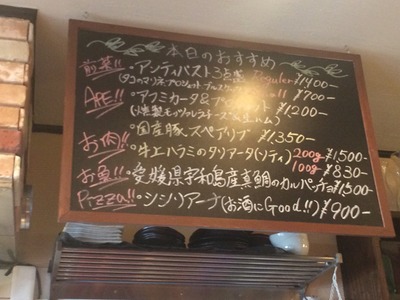 本日のおすすめ
前菜!! ・アンティパスト3点盛 Reguler ¥1,400-
(タコのマリネ・プロシュート ブルスケッタ) ¥700-
APE!! ・アフミカータ&プロシュット ¥1,200-
(燻製モッツァレラチーズ&生ハム)
お肉!! ・国産豚スペアリブ ¥1,350-
・牛上ハラミのタリアータ(ソテイ) 200g ¥1,500-
100g ¥830-
お魚!! ・愛媛県宇和島産真鯛のカルパッチョ ¥1,500-
Pizza!! ・シシリアーナ(お酒にGood!!) ¥900-